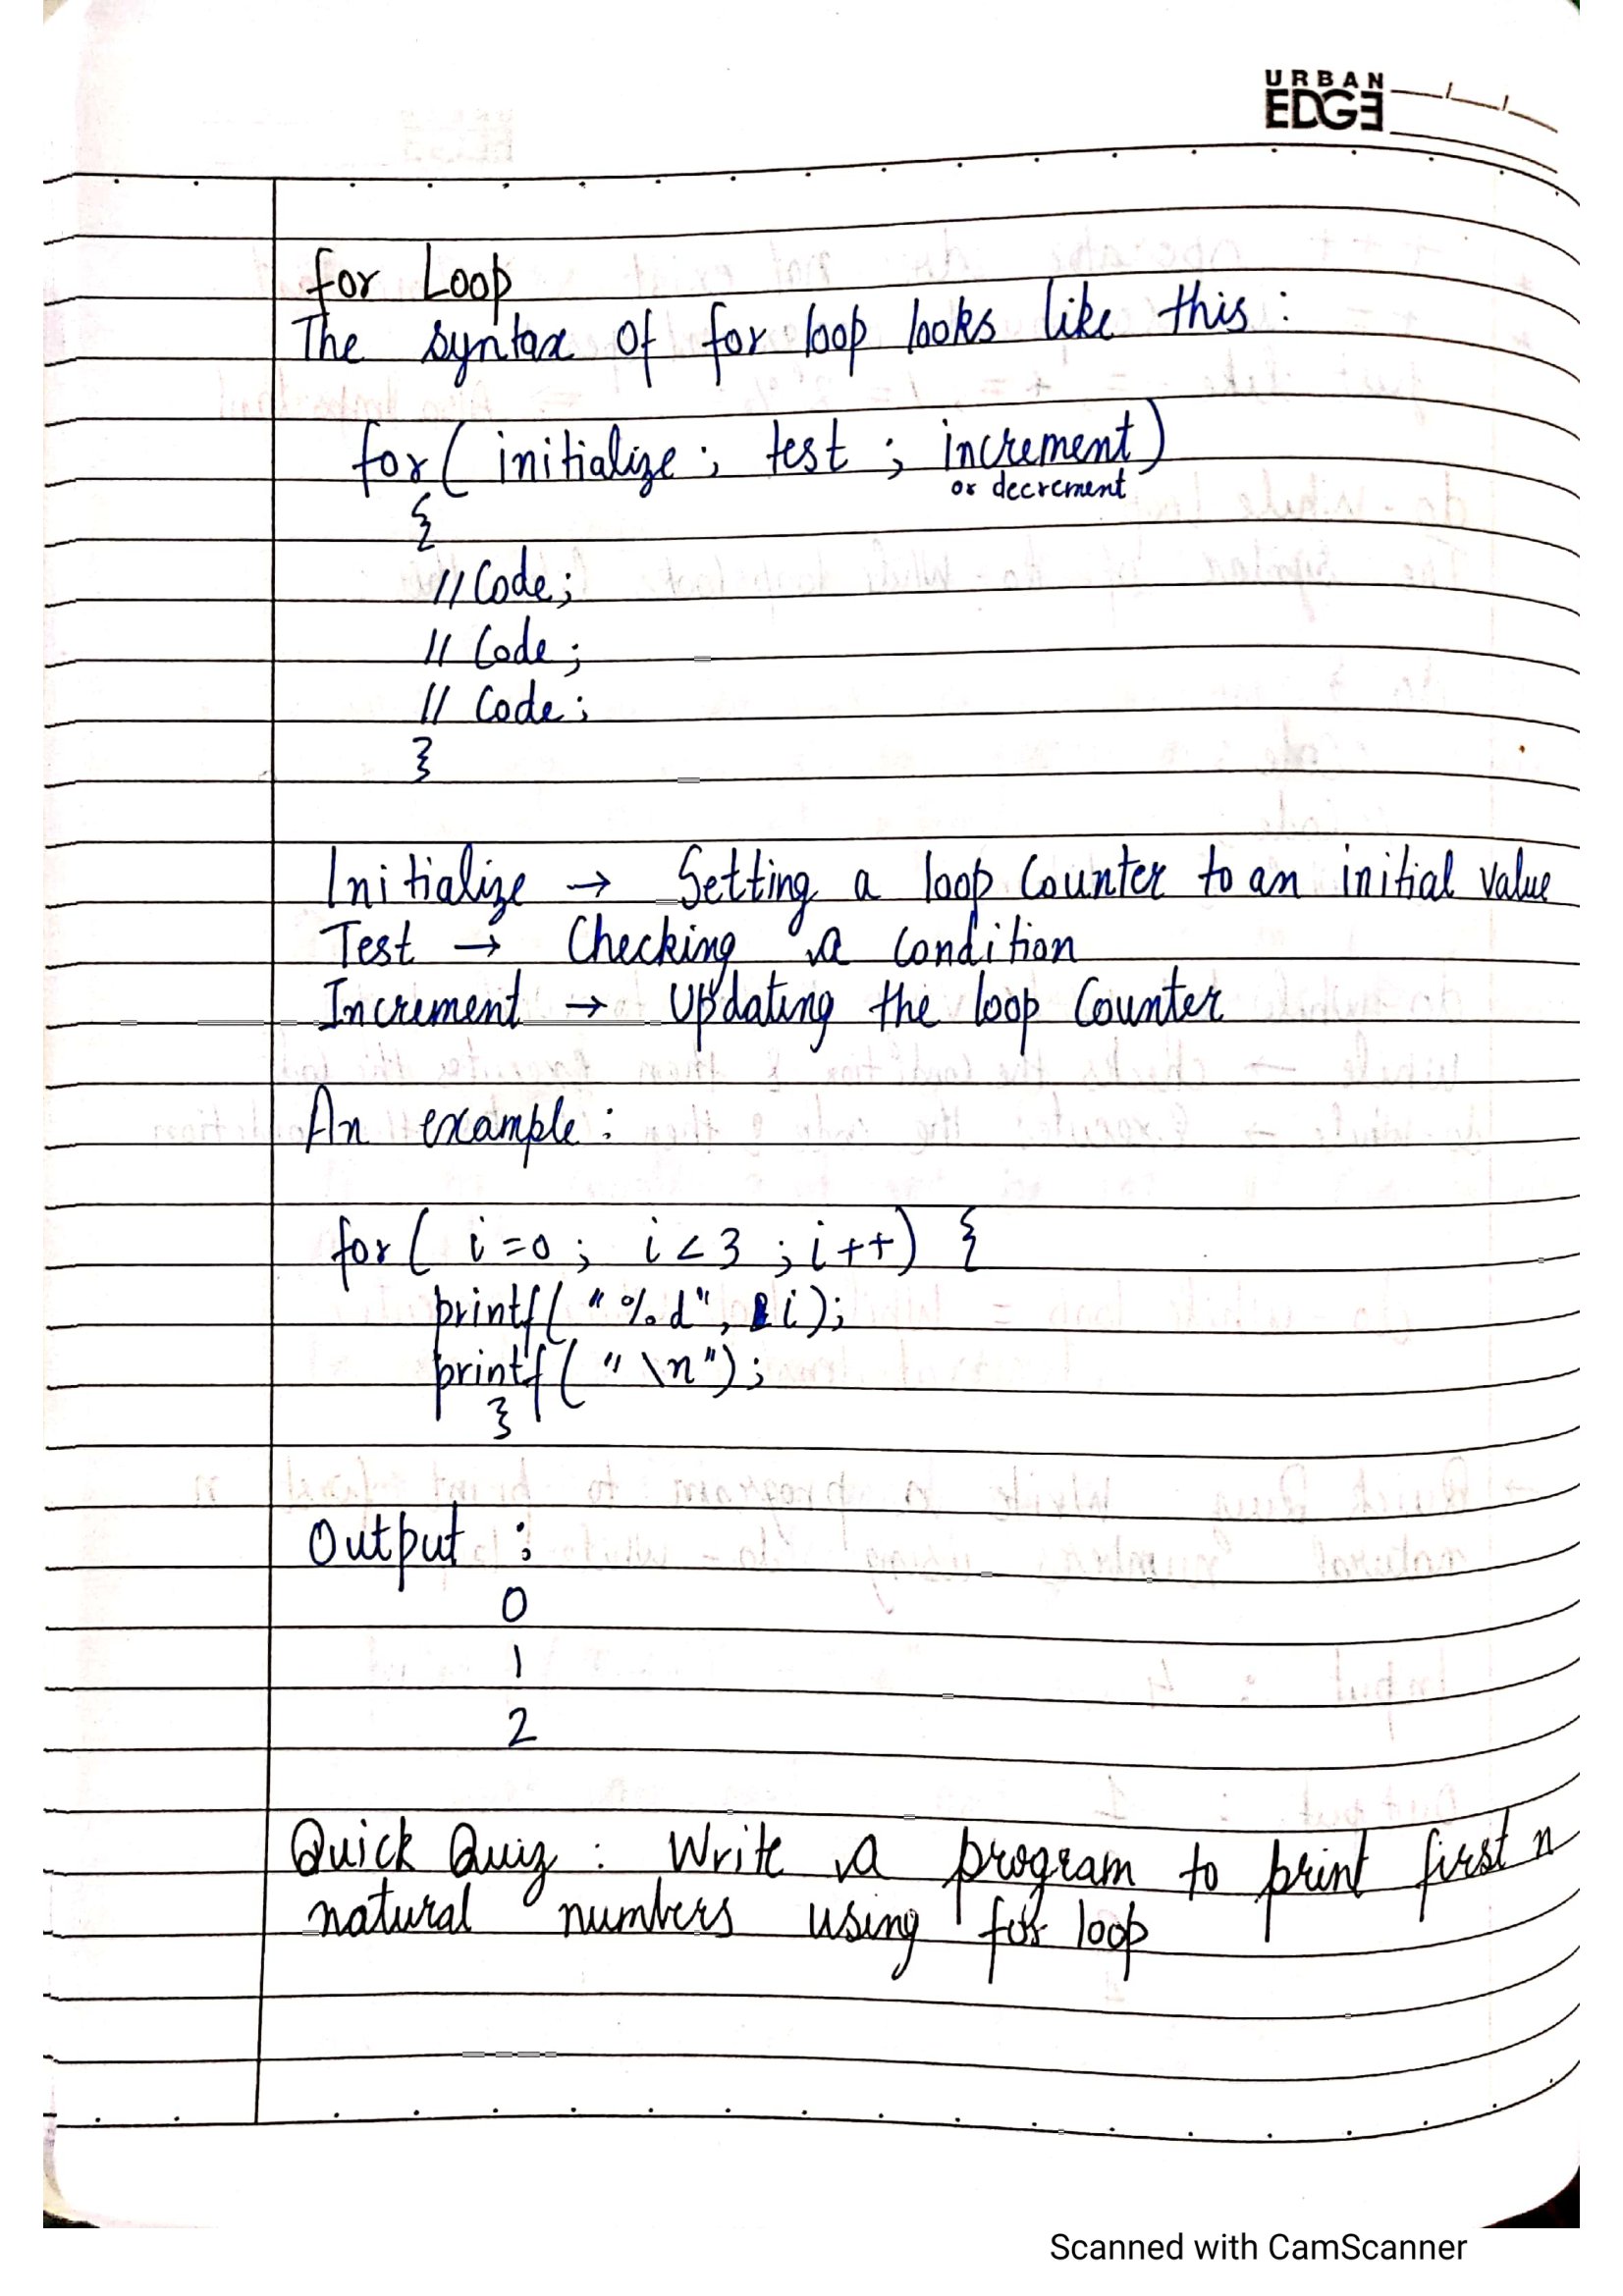 URBAN
EDGE
for Loop
The syntax of for loop looks like this :
for( initialize ; test ; increment)
or decrement
{
// Code ;
// Code ;
// Code ;
}
Initialize → Setting a loop Counter to an initial value
Test → Checking a condition
Increment → Updating the loop Counter
An example :
for( i=0 ; i<3 ; i++) {
printf( "%d", i);
printf( "\n");
}
Output :
0
1
2
Quick Quiz : Write a program to print first n
natural numbers using for loop
Scanned with CamScanner